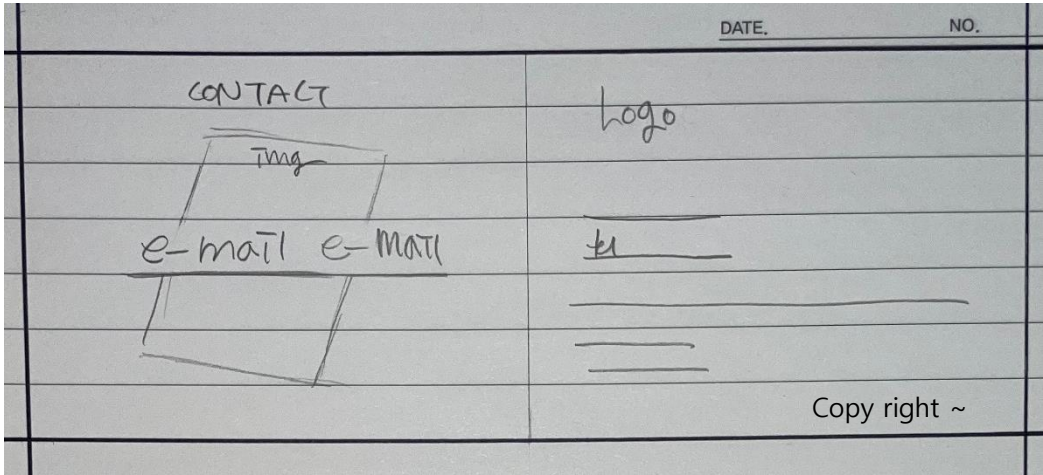 DATE. NO.
CONTACT
img
e-mail e-mail
Logo
tel
Copy right ~